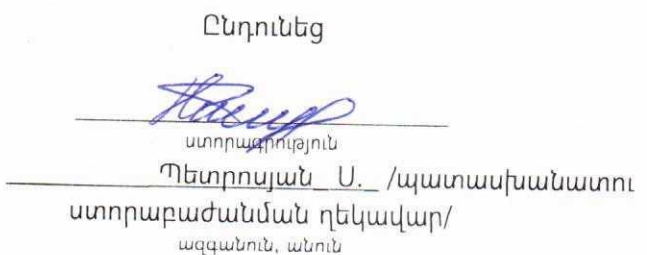 Ընդունեց
ստորագրություն
Պետրոսյան Ս. /պատասխանատու
ստորաբաժանման ղեկավար/
ազգանուն, անուն